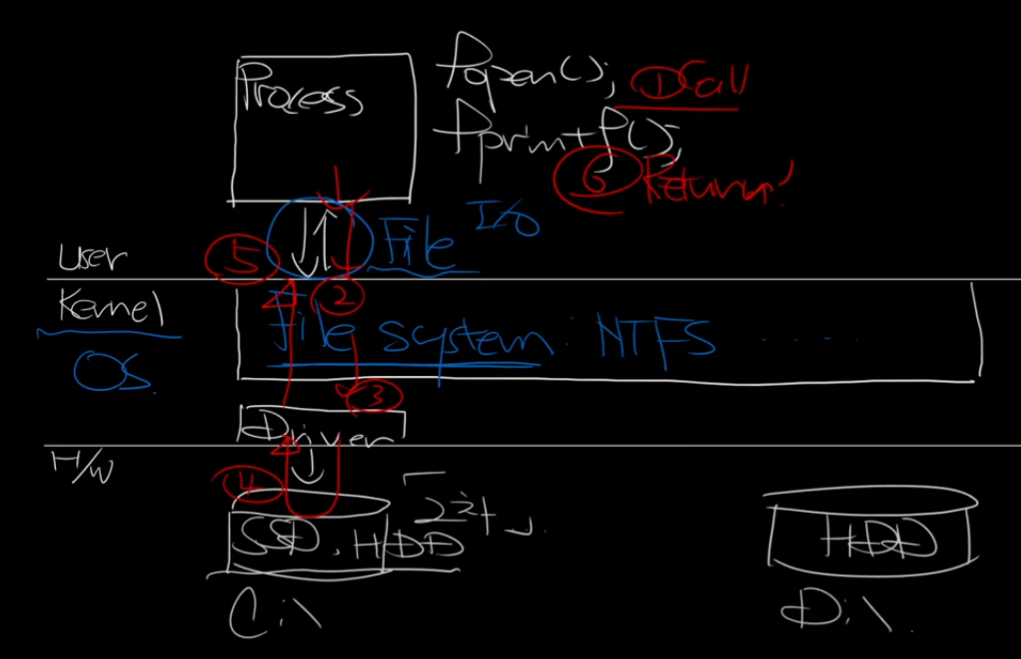 Process
fopen(); ① Call
fprintf();
⑥ Return!
File I/O
User
⑤
②
Kernel
File system : NTFS ......
OS
③
Driver
H/W
④
SSD. HDD
HDD
C:\
D:\